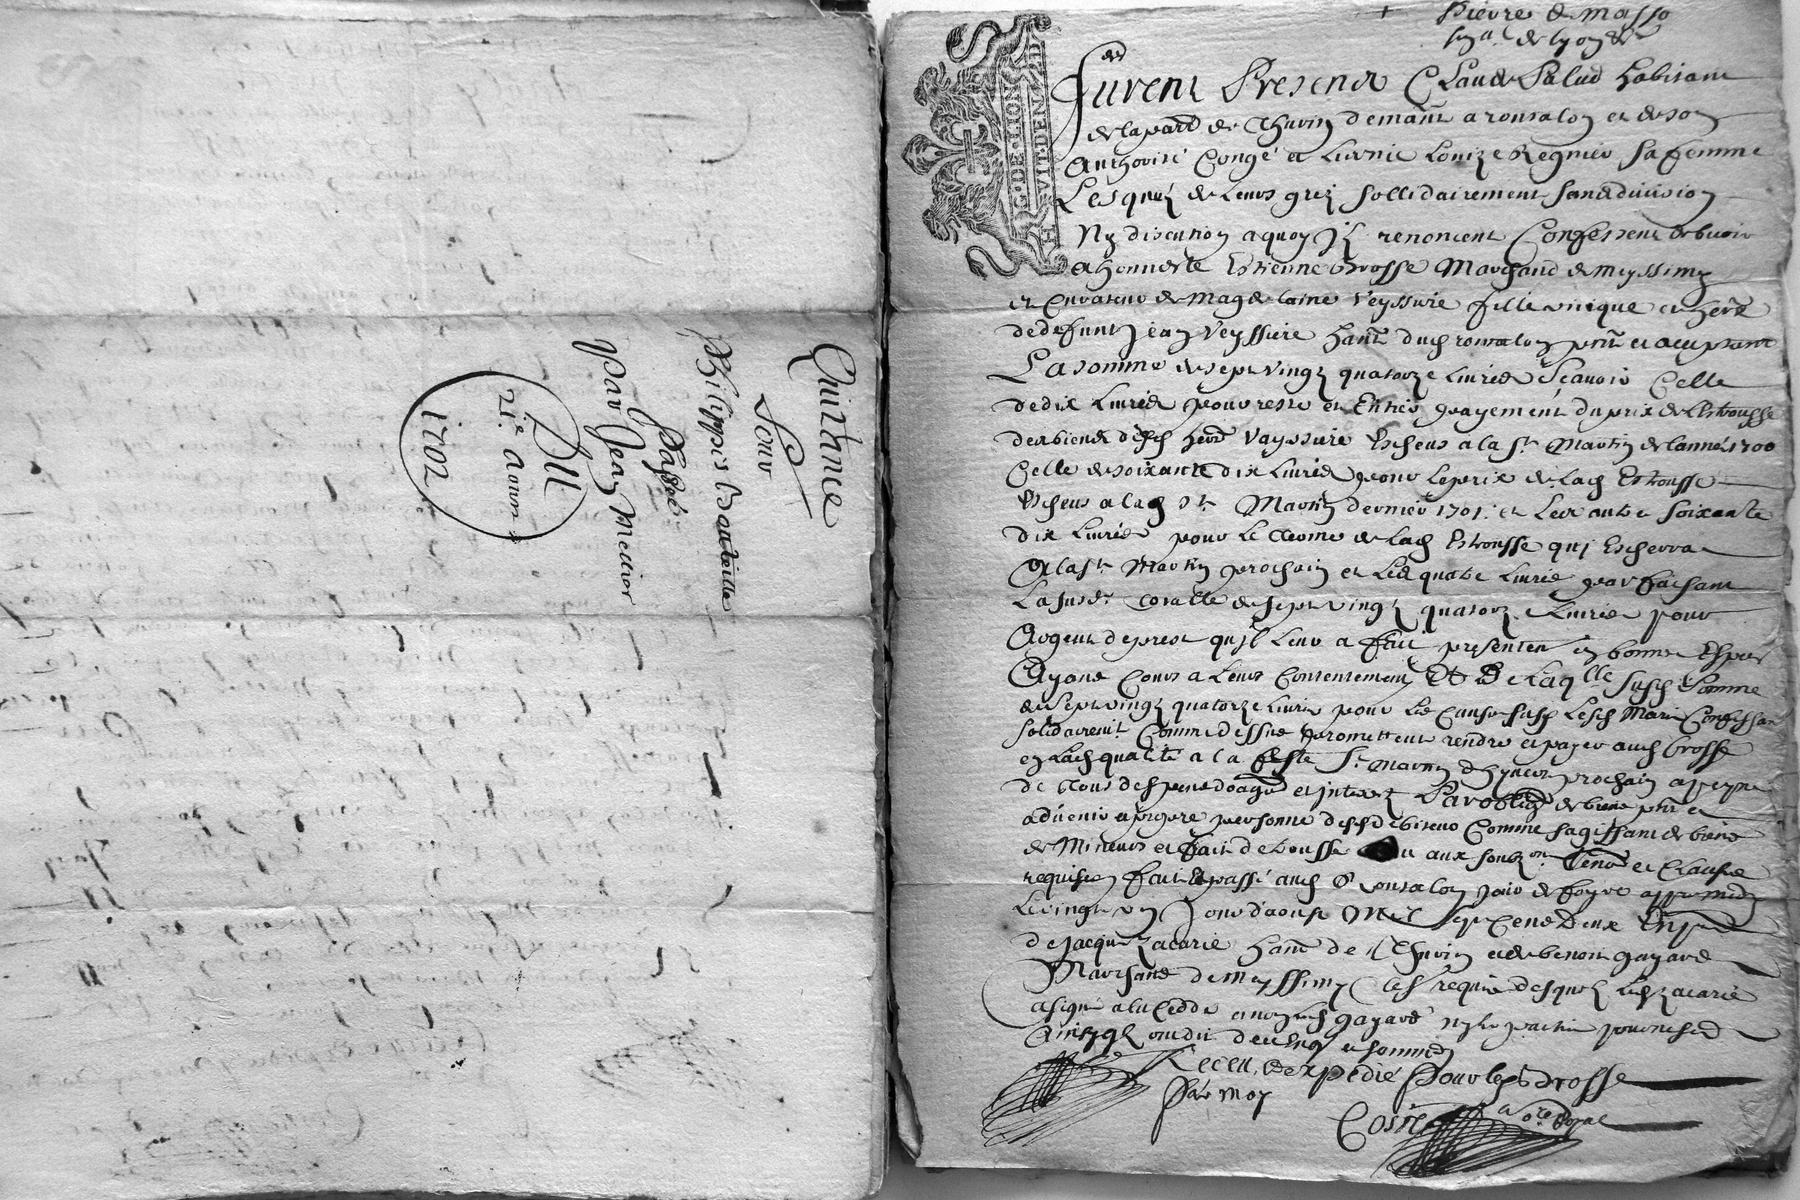 Quittance
Pour
Philippes Bouteille
Passée
Par Jean Mellier
Du
21e
1702
G. DE. LION
H VIT. DEN. D
Pierre de masso
sen.al de lyon
furent Presents Claude Palud habitant
de la parr de Thurin demant a rontalon et de son
Authorité Congé et Licence Louize Regnier sa femme
Lesquelz de Leurs grez sollidairement sans division
Ny discution a quoy Ilz renoncent Confessent debvoir
a honneste Estienne brosse Marchand de Meyssimy
et Curateur de Magdelaine Veyssiere fille unique et here
de deffunt Jean Veyssiere hant dud rontalon pnt et acceptant
La somme de sept vingtz quatorze Livres Sçavoir Celle
de dix Livres pour reste et Entier payement du prix de Lestrousse
des biens desd here Vayssiere Escheus a la St Martin de lannée 1700
Celle de soixante dix Livres pour le prix de lad Estrousse
Escheus a lad St Martin dernier 1701. et Les autre soixante
dix Livres pour le Terme de lad Estrousse qui Escherra
A la St Martin prochain et Les quatre Livres par faisant
La susd. Totalle de sept vingtz quatorze Livres pour
Argent de prest quil Leur a fait presentent en bonne Espece
Ayant Cours a Leurs Contentement Et de Laqlle susd Somme
de sept vingtz quatorze Livres pour Les Causes susd Lesd Mariés Confessans
solidairemt Comme dessus promettent rendre et payer aud brosse
en lad qualité a la feste St Martin dhyver prochain a peyne
de Tous despens domages et interestz Par oblig de biens pnt et
advenir a propre personne desd debiteurs Comme sagissant de biens
de Mineurs et fait de Trousse aux soubz.on renon et Clauses
requises fait Et passé aud rontalon jour de foyre appres midy
Le vingt un Jour d'aoust Mil sept Cent Deux En pnce
de Jacques Zacarie hant de Thurin et de benoit gayard
Marchand de Meyssimy tes requis desquelz Led Zacarie
a signé a la Cedde et non led gayard ny les parties pour ne sçavoir
Ainsy qlz ont dit de ce Enquis et sommés
Receu, Et Expedié Pour led brosse
Par moy
Coste no.re Royal